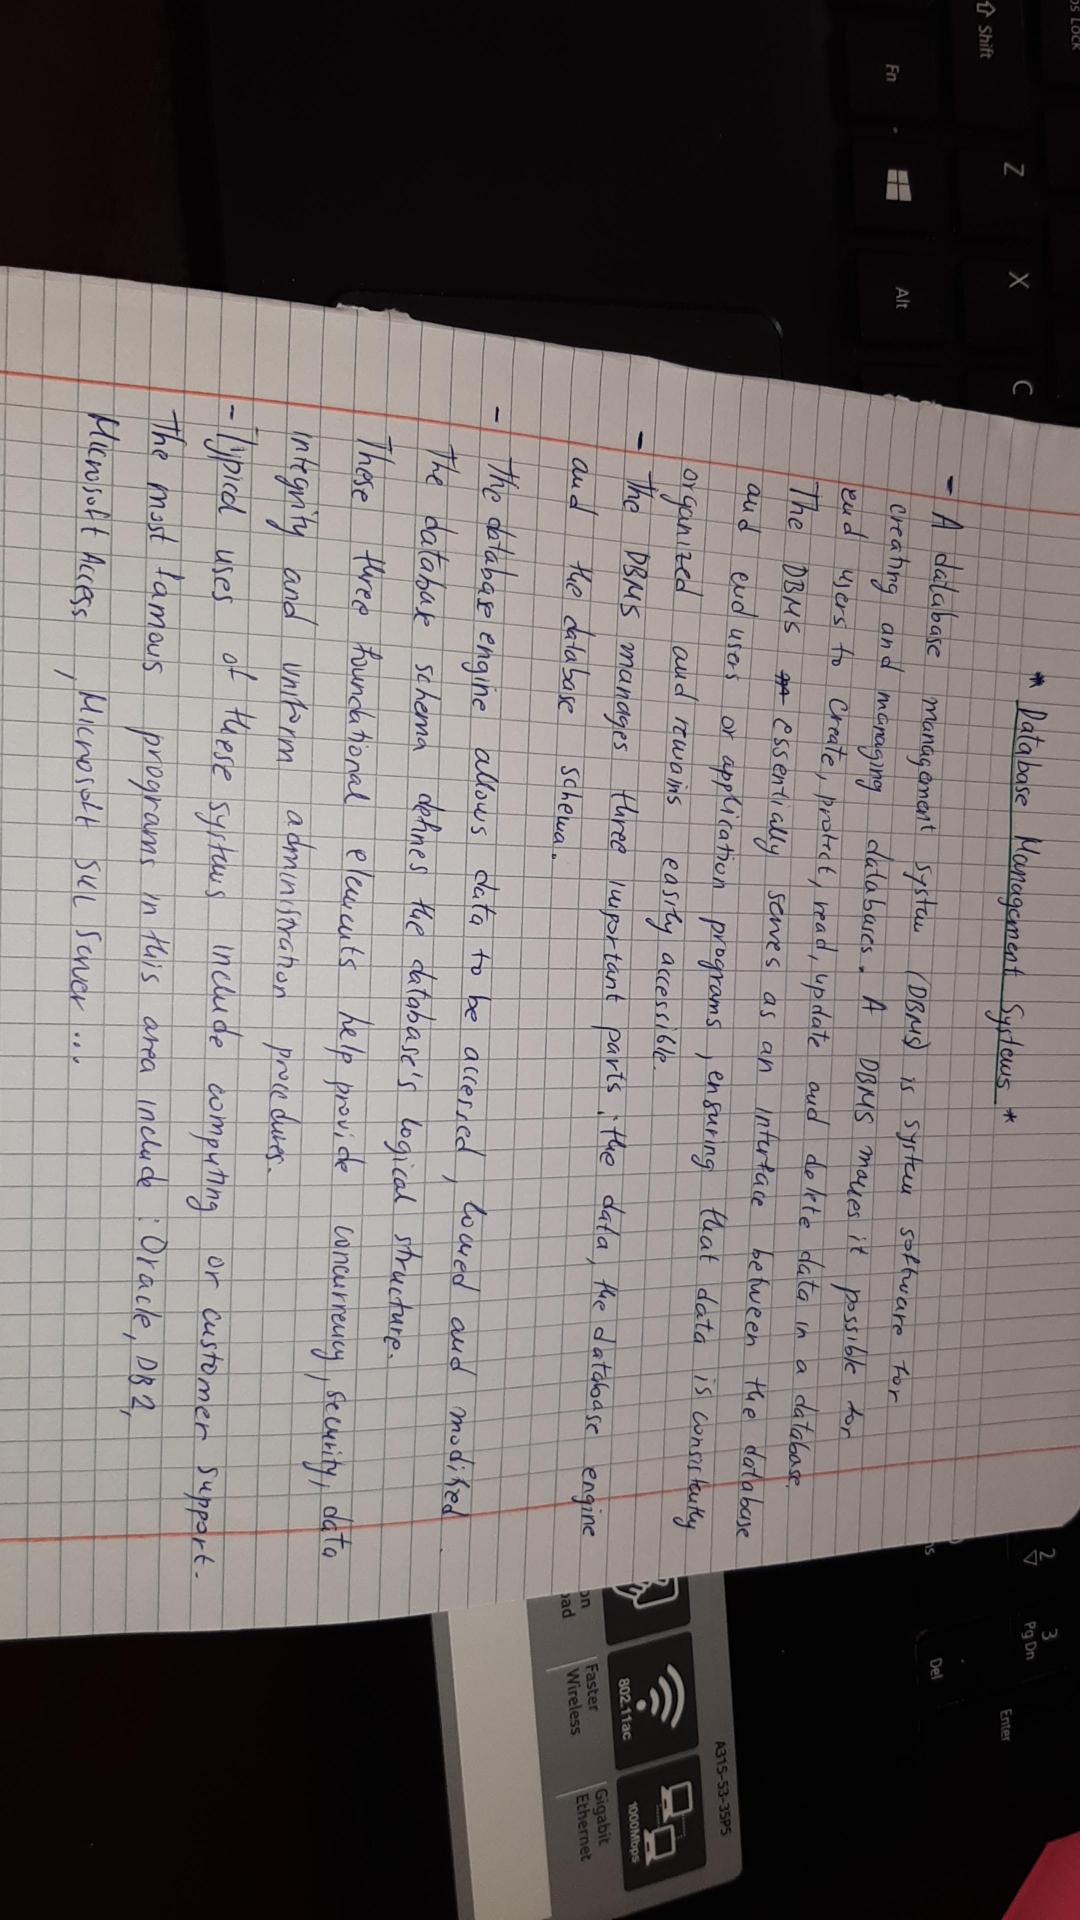 * Database Management Systems *
- A database management system (DBMS) is system software for
creating and managing databases. A DBMS makes it possible for
end users to create, protect, read, update and delete data in a database.
The DBMS essentially serves as an interface between the database
and end users or application programs, ensuring that data is consistently
organized and remains easily accessible.
- The DBMS manages three important parts: the data, the database engine
and the database schema.
- The database engine allows data to be accessed, locked and modified.
The database schema defines the database's logical structure.
These three foundational elements help provide concurrency, security, data
integrity and uniform administration procedures.
- Typical uses of these systems include computing or customer support.
The most famous programs in this area include: Oracle, DB2,
Microsoft Access, Microsoft SQL Server ...
Z X C
Shift
Fn Alt
2 3
Pg Dn
Enter
Del
A315-53-35P5
802.11ac 1000Mbps
Faster Wireless
Gigabit Ethernet